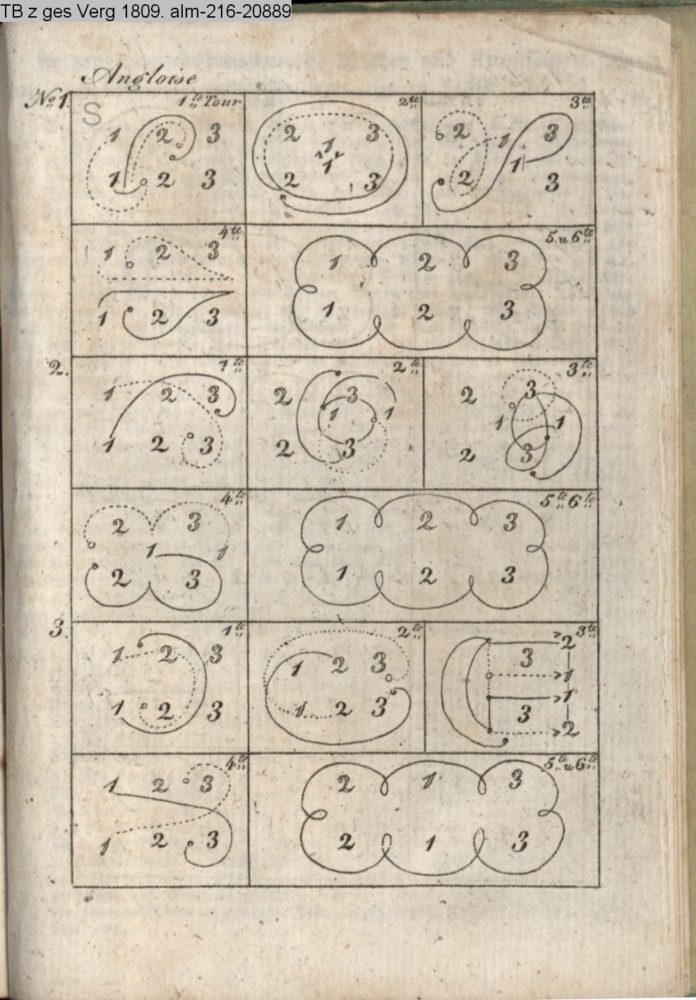 TB z ges Verg 1809. alm-216-20889
Angloise
No 1. 1te Tour 2te 3te
S
1 2 3 2 3 2 1 3
1 2 3 1 1 1 3
2 3 2
4te 5. u. 6te
1 2 3 1 2 3
1 2 3 1 2 3
2. 1te 2te 3te
1 2 3 2 3 2 3
1 1 1 1
1 2 3 2 3 2 3
4te 5te 6te
2 3 1 2 3
1 1
2 3 1 2 3
3. 1te 2te 3te
1 2 3 1 2 3 2
3
1
1
1 2 3 1 2 3 3
2
4te 5te u 6te
1 2 3 2 1 3
1 2 3 2 1 3